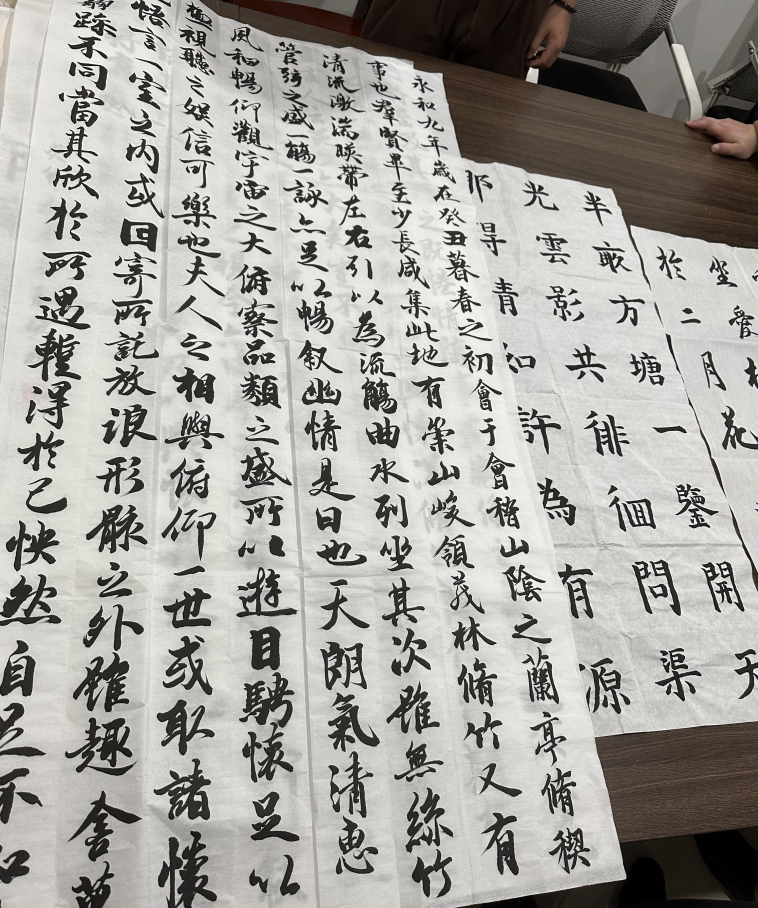 坐愛
於二月花
半畝方塘一鑒開天
光雲影共徘徊問渠
那得清如許為有源
永和九年歲在癸丑暮春之初會于會稽山陰之蘭亭脩稧
事也羣賢畢至少長咸集此地有崇山峻領茂林脩竹又有
清流激湍暎帶左右引以為流觴曲水列坐其次雖無絲竹
管弦之盛一觴一詠亦足以暢叙幽情是日也天朗氣清惠
風和暢仰觀宇宙之大俯察品類之盛所以遊目騁懷足以
極視聽之娛信可樂也夫人之相與俯仰一世或取諸懷
悟言一室之内或因寄所託放浪形骸之外雖趣舍萬
躁不同當其欣於所遇蹔得於己怏然自足不知